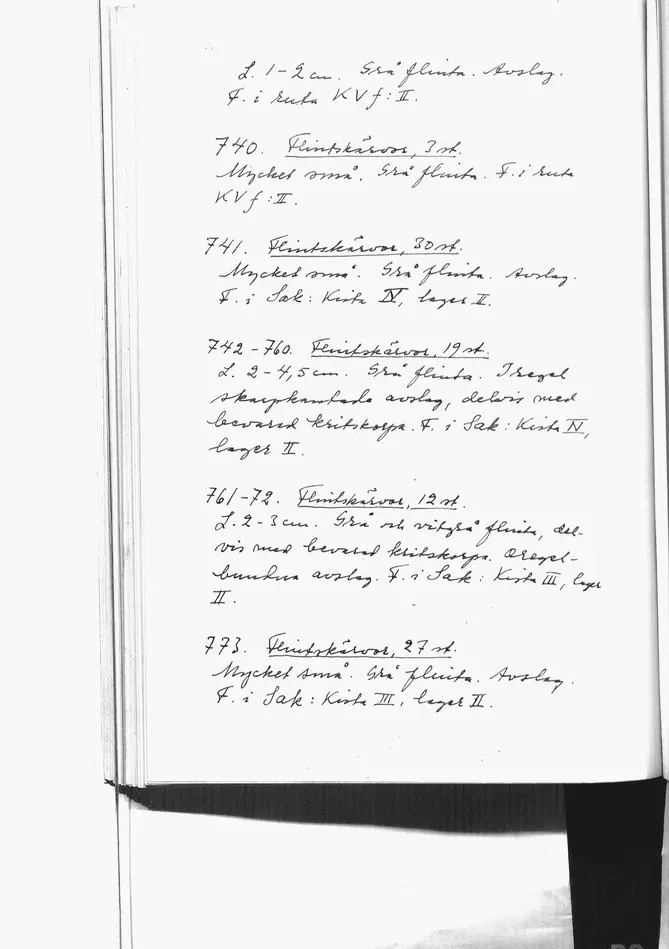 L. 1-2 cm. Grå flinta. Avslag.
F. i ruta KV f: II.
740. Flintskärvor, 3 st.
Mycket små. Grå flinta. F. i ruta
KV f: II.
741. Flintskärvor, 30 st.
Mycket små. Grå flinta. Avslag.
F. i Sak: Kista IV, lager II.
742-760. Flintskärvor, 19 st.
L. 2-4,5 cm. Grå flinta. I regel
skarpkantade avslag, delvis med
bevarad kritskorpa. F. i Sak: Kista IV,
lager II.
761-72. Flintskärvor, 12 st.
L. 2-3 cm. Grå och vitgrå flinta, del-
vis med bevarad kritskorpa. Oregel-
bundna avslag. F. i Sak: Kista III, lager
II.
773. Flintskärvor, 27 st.
Mycket små. Grå flinta. Avslag.
F. i Sak: Kista III, lager II.